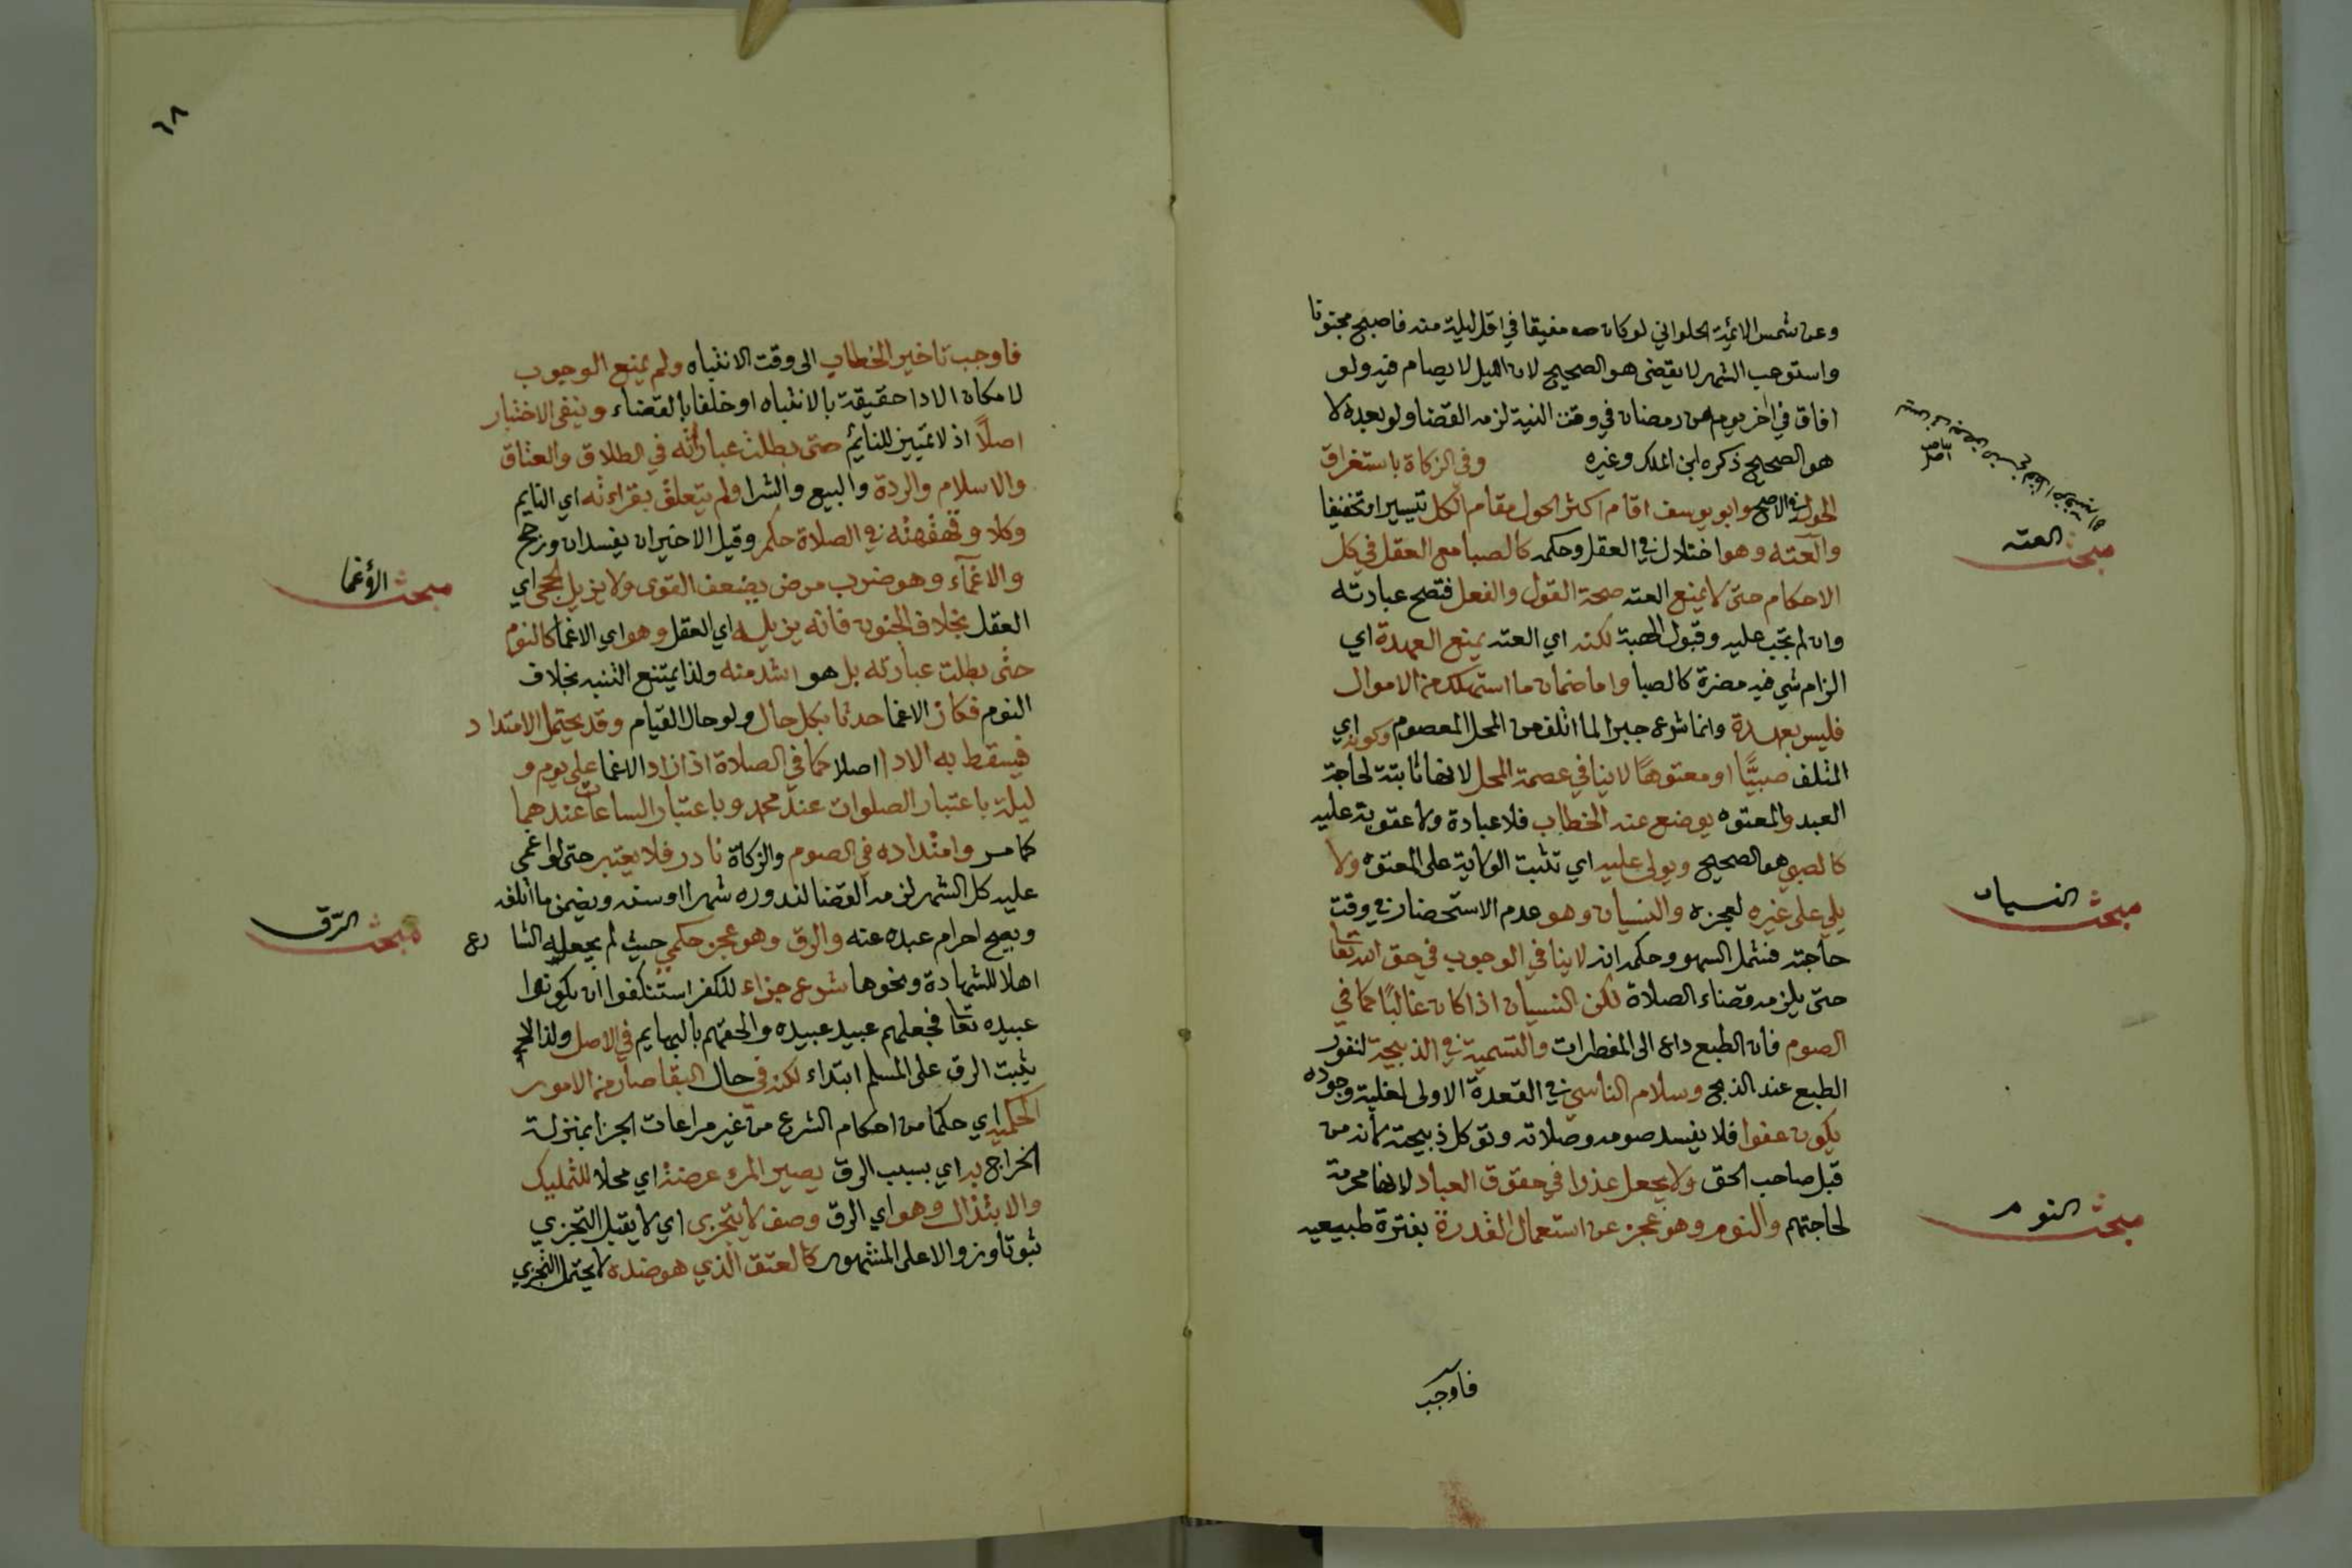 وعن شمس الائمة الحلواني لو كان مفيقا في اول ليلة منه فاصبح مجنونا
واستوعب الشهر لا يقضى هو الصحيح لان الليل لا يصام فيه ولو
افاق في اخر يوم من رمضان في وقت النية لزمه القضا ولو بعده لا
هو الصحيح ذكره ابن الملك وغيره وفي الزكاة باستغراق
الحول في الاصح وابو يوسف اقام اكثر الحول مقام الكل تيسيرا وتخفيفا
والعته وهو اختلال في العقل وحكمه كالصبا مع العقل في كل
الاحكام حتى لا يمنع العته صحة القول والفعل فتصح عبادته
وان لم تجب عليه وقبول الهبة لكنه اي العته يمنع العهدة اي
الزام شي فيه مضرة كالصبا واما ضمان ما استهلك من الاموال
فليس بعهدة وانما شرع جبرا لما اتلف من المحل المعصوم وكونه اي
المتلف صبيًّا او معتوهًا لا ينافي عصمة المحل لانها ثابتة لحاجة
العبد والمعتوه يوضع عنه الخطاب فلا عبادة ولا عقوبة عليه
كالصبي هو الصحيح ويولى عليه اي تثبت الولاية على المعتوه ولا
يلي على غيره لعجزه والنسيان وهو عدم الاستحضار في وقت
حاجته فشمل السهو وحكمه انه لا ينافي الوجوب في حق الله تعا
حتى يلزمه قضاء الصلاة لكن النسيان اذا كان غالبًا كما في
الصوم فان الطبع داع الى المفطرات والتسمية في الذبيحة لنفور
الطبع عند الذبح وسلام الناسي في القعدة الاولى لغلبة وجوده
يكون عفوا فلا يفسد صومه وصلاته وتوكل ذبيحته لانه من
قبل صاحب الحق ولا يجعل عذرا في حقوق العباد لانها محرمة
لحاجتهم والنوم وهو عجز عن استعمال القدرة بفترة طبيعيه
فاوجب
مبحث العته
مبحث النسيان
مبحث النوم
٦٨
فاوجب تاخير الخطاب الى وقت الانتباه ولم يمنع الوجوب
لامكان الادا حقيقة بالانتباه او خلفا بالقضاء وينفى الاختيار
اصلًا اذ لا تمييز للنائم حتى بطلت عباراته في الطلاق والعتاق
والاسلام والردة والبيع والشرا ولم يتعلق بقراءته اي النايم
وكلامه وقهقهته في الصلاة حكم وقيل الاخيران يفسدان ورجح
والاغمآء وهو ضرب مرض يضعف القوى ولا يزيل الحجى اي
العقل بخلاف الجنون فانه يزيله اي العقل وهو اي الاغما كالنوم
حتى بطلت عبارته بل هو اشد منه ولذا يمتنع التنبه بخلاف
النوم فكان الاغما حدثا بكل حال ولو حال القيام وقد يحتمل الامتداد
فيسقط به الادا اصلا كما في الصلاة اذا زاد الاغما على يوم و
ليلة باعتبار الصلوات عند محمد وباعتبار الساعات عندهما
كما مر وامتداده في الصوم والزكاة نادر فلا يعتبر حتى لو اغمي
عليه كل الشهر لزمه القضا لندوره شهرا او سنة ويضمن ما اتلفه
ويصح احرام عبده عنه والرق وهو عجز حكمي حيث لم يجعله الشارع
اهلا للشهادة ونحوها شرع جزاء للكفر استنكفوا ان يكونوا
عبيده تعا فجعلهم عبيد عبيده والحقهم بالبهايم في الاصل ولذا لا
يثبت الرق على المسلم ابتداء لكنه في حال البقا صار من الامور
الحكمية اي حكما من احكام الشرع من غير مراعات الجزا بمنزلة
الخراج به اي بسبب الرق يصير المرء عرضة اي محلا للتمليك
والابتذال وهو اي الرق وصف لا يتجزى اي لا يقبل التجزي
ثبوتا وزوالا على المشهور كالعتق الذي هو ضده لا يحتمل التجزي
مبحث الأغما
مبحث الرّق